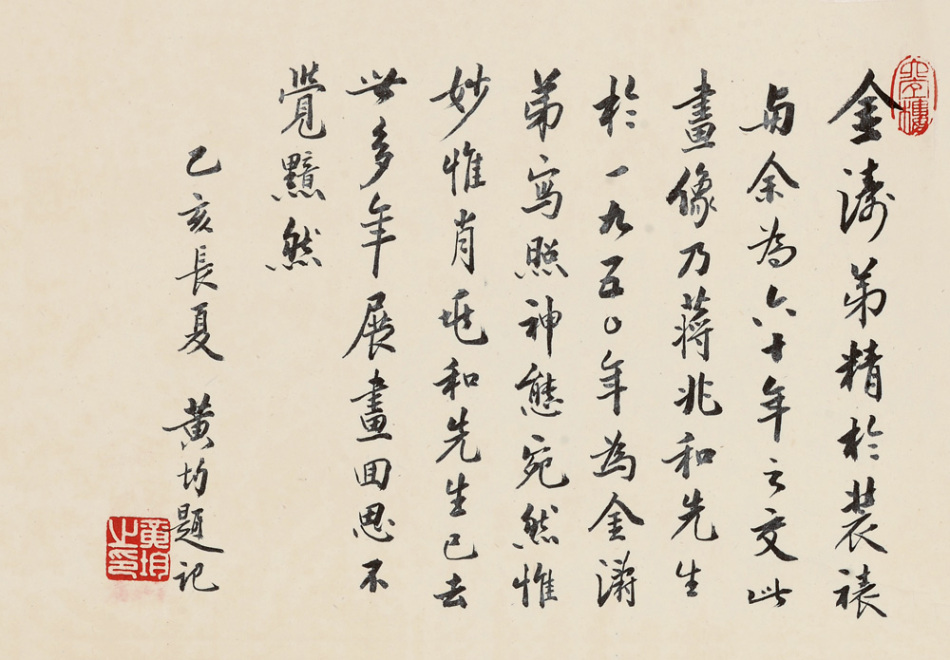 金濤弟精於裝裱
与余為六十年之交此
畫像乃蔣兆和先生
於一九五〇年為金濤
弟寫照神態宛然惟
妙惟肖兆和先生已去
世多年展畫回思不
覺黯然
乙亥長夏 黃均題記
黃均之印